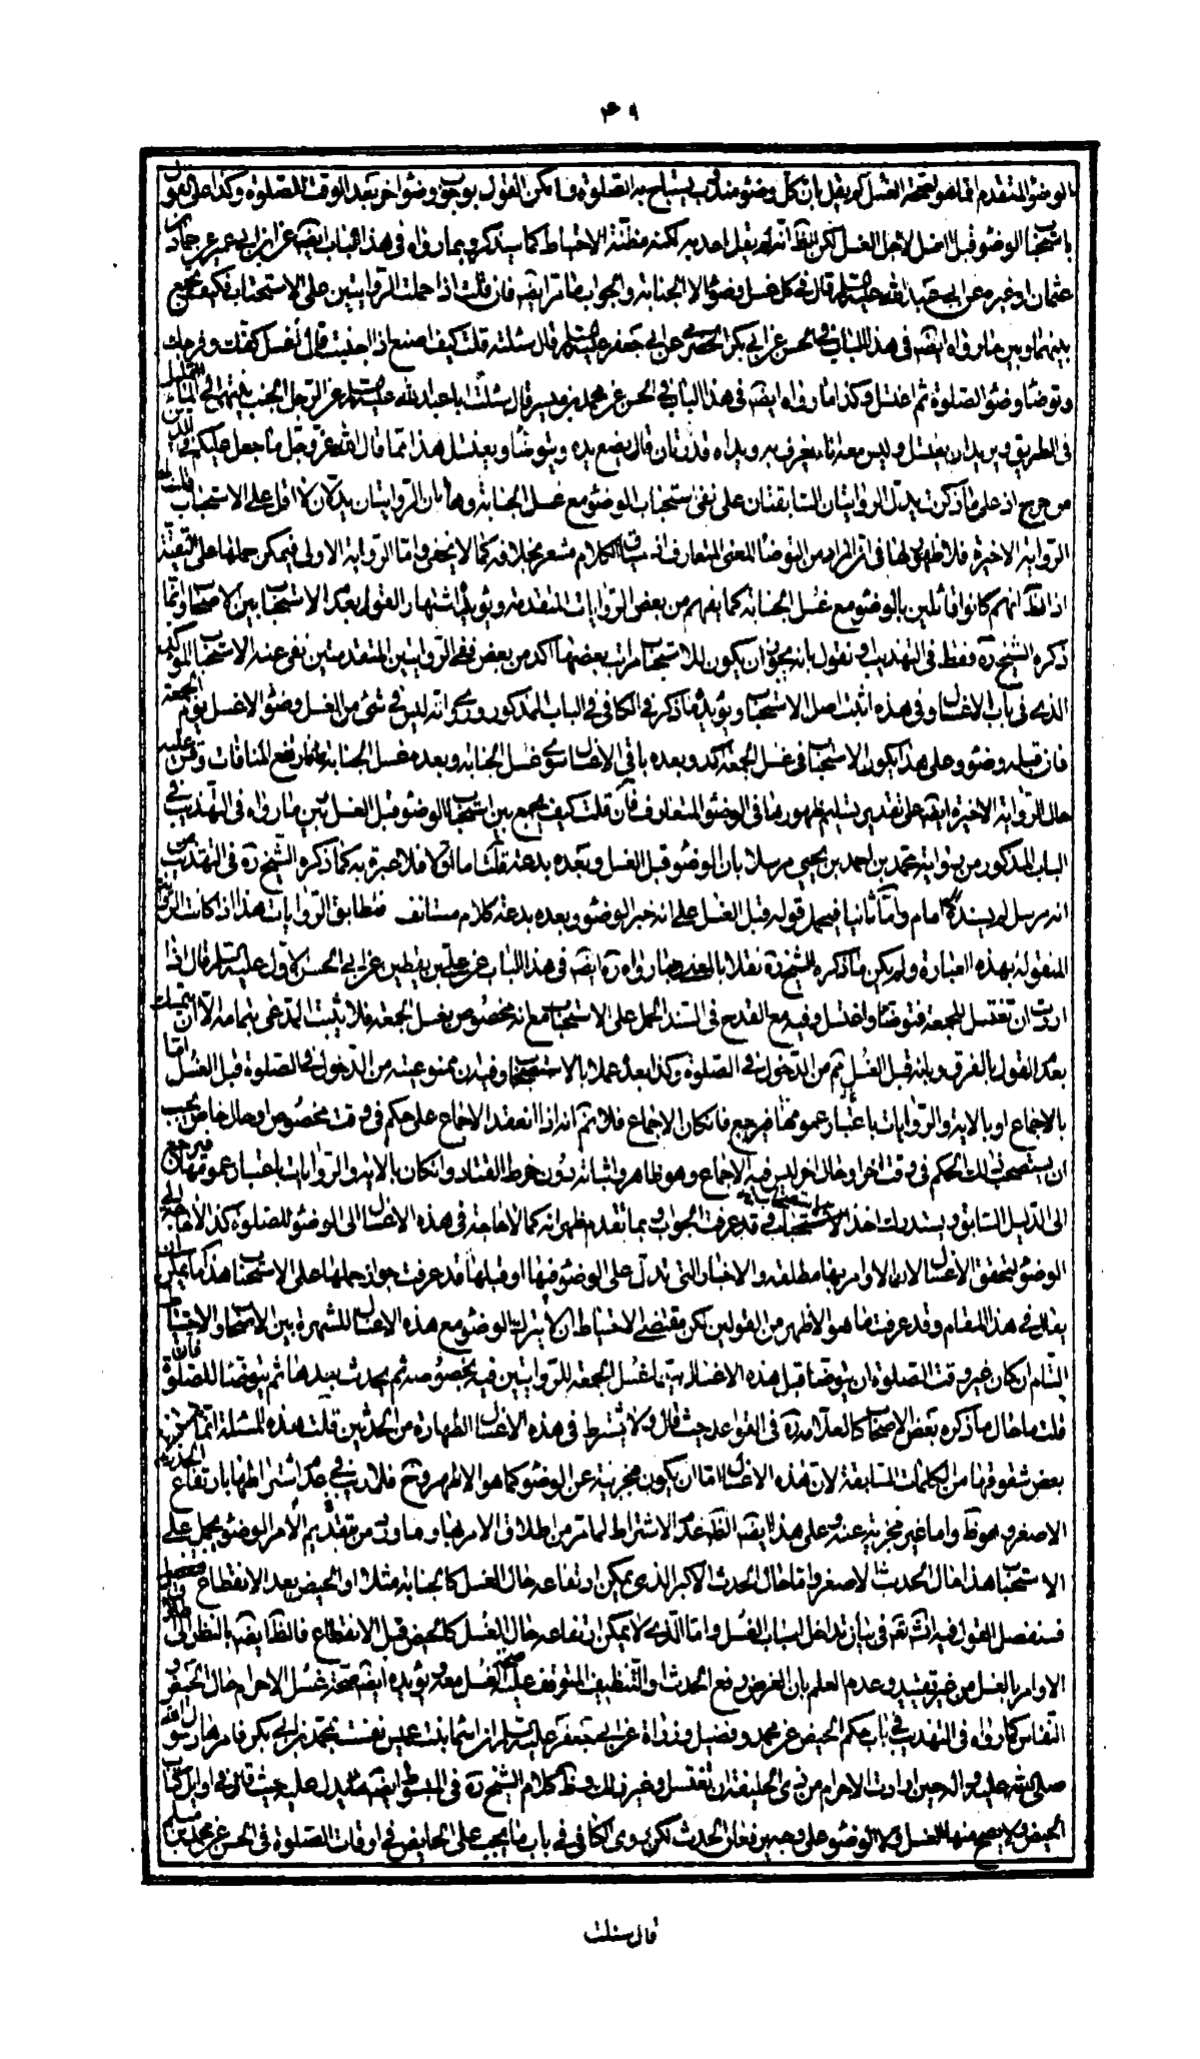 ۴۹
بالوضوء المتقدم انما هو لصحة الغسل لم يقل بان كل وضوء مندوب يستباح به الصلوة فامكن القول بوجوب وضوء اخر بعد الوقت للصلوة وكذا على القول
باستحباب الوضوء قبل الغسل لاجل الغسل لكن الظ انه لم يقل احد به لكنه مظنة الاحتياط كما سيذكر وبما رواه في هذا الباب ايضا عن ابن ابي عمير عن حماد بن
عثمان او غيره عن ابي عبد الله عليه السلم قال في كل غسل وضوء الا الجنابة والجواب ما مر ايضا فان قلت اذا حملت الروايتين على الاستحباب فكيف تجمع
بينهما وبين ما رواه ايضا في هذا الباب في الحسن عن ابي بكر الحضرمي عن ابي جعفر عليه السلم قال سئلته قلت كيف اصنع اذا اجنبت قال اغسل كفيك وفرجك
وتوضا وضوء الصلوة ثم اغتسل وكذا ما رواه ايضا في هذا الباب في الحسن عن محمد بن ميسر قال سئلت ابا عبد الله عليه السلم عن الرجل الجنب ينتهي الى الماء القليل
في الطريق ويريد ان يغتسل وليس معه اناء يغرف به ويداه قذرتان قال يضع يده ويتوضا ويغتسل هذا مما قال الله عز وجل ما جعل عليكم في الدين
من حرج اذ على ما ذكرت يدل الروايتان السابقتان على نفي استحباب الوضوء مع غسل الجنابة وهاتان الروايتان يدلان لا اقل على الاستحباب قلت اما
الرواية الاخيرة فلا ظهور لها في ان المراد من التوضا المعنى المتعارف اذ سياق الكلام مشعر بخلافه كما لا يخفى واما الرواية الاولى فيمكن حملها على التقية
اذ الظ انهم كانوا قائلين بالوضوء مع غسل الجنابة كما يفهم من بعض الروايات المتقدمة ويؤيد اشتهار القول بعدم الاستحباب بين الاصحاب وانما
ذكره الشيخ ره فقط في التهذيب ونقول بانه يجوز ان يكون للاستحباب مراتب بعضها اكد من بعض ففي الروايتين المتقدمتين نفى عنه الاستحباب المؤكد
الذي في باب الاغسال وفي هذه اثبت اصل الاستحباب ويؤيده ما ذكر في الكافي في الباب المذكور وروي انه ليس في شئ من الغسل وضوء الا غسل يوم الجمعة
فان قبله وضوء وعلى هذا يكون الاستحباب في غسل الجمعة اكد وبعده باقي الاغسال سوى غسل الجنابة وبعده غسل الجنابة فارتفع المنافات وقس عليه
حال الرواية الاخيرة ايضا على تقدير تسليم ظهورها في الوضوء المتعارف فان قلت كيف يجمع بين استحباب الوضوء قبل الغسل وبين ما رواه في التهذيب في
الباب المذكور من رواية محمد بن احمد بن يحيى مرسلا بان الوضوء قبل الغسل وبعده بدعة قلت اما اولا فلا عبرة به كما ذكره الشيخ ره في التهذيب من
انه مرسل لم يسنده الى امام واما ثانيا فيحمل قوله قبل الغسل على انه خبر الوضوء وبعده بدعة كلام مستانف فتطابق الروايات هذا اذا كانت الرواية
المنقولة بهذه العبارة ولم يكن ما ذكره الشيخ ره نقلا بالمعنى وبما رواه ره ايضا في هذا الباب عن علي بن يقطين عن ابي الحسن الاول عليه السلم قال اذا
اردت ان تغتسل للجمعة فتوضا واغتسل وفيه مع القدح في السند الحمل على الاستحباب مع انه مخصوص بغسل الجمعة فلا يثبت المدعى بتمامه الا ان يتمسك
بعدم القول بالفرق وبانه قبل الغسل ثم من الدخول في الصلوة وكذا بعده عملا بالاستصحاب وفيه ان ممنوعيته من الدخول في الصلوة قبل الغسل اما
بالاجماع او بالاية والروايات باعتبار عمومها فيرجع فان كان الاجماع فلا نم انه اذا انعقد الاجماع على حكم في وقت مخصوص وحال خاص يجب
ان يستصحب ذلك الحكم في وقت اخر وحال اخر ليس فيه الاجماع وهو ظاهر واثباته دون خرط القتاد وان كان بالاية والروايات باعتبار عمومها فيرجع
الى الدليل السابق ويستدرك اخذ الاستصحاب وقد عرفت الجواب وبما تقدم ظهر انه كما لا حاجة في هذه الاغسال الى الوضوء للصلوة كذا لا حاجة الى
الوضوء لتحقق الاغسال لان الاوامر بها مطلقة والاخبار التي تدل على الوضوء فيها او قبلها قد عرفت جواز حملها على الاستحباب هذا ما يمكن ان
يقال في هذا المقام وقد عرفت ما هو الاظهر من القولين لكن مقتضى الاحتياط ان لا يترك الوضوء مع هذه الاغسال للشهرة بين الاصحاب والاحتياط
التام ان كان غير وقت الصلوة ان يتوضا قبل هذه الاغسال سيما غسل الجمعة للروايتين فيه بخصوصه ثم يحدث بعدها ثم يتوضا للصلوة فان
قلت ما حال ما ذكره بعض الاصحاب كالعلامة ره في القواعد حيث قال ولا يشترط في هذه الاغسال الطهارة من الحدثين قلت هذه المسئلة انما
بعض شقوقها من الكلمات السابقة لان هذه الاغسال اما ان يكون مجزية عن الوضوء كما هو الاظهر وح فلا ريب في عدم اشتراطها بارتفاع الحدث
الاصغر وهو ظ واما غير مجزية عنه وعلى هذا ايضا الظ عدم الاشتراط لما مر من اطلاق الامر بها وما ورد من تقديم الامر بالوضوء يحمل على
الاستحباب هذا حال الحدث الاصغر واما حال الحدث الاكبر الذي يمكن ارتفاعه حال الغسل كالجنابة مثلا او الحيض بعد الانقطاع
فسنفصل القول فيه انشاء الله تعالى في بيان تداخل اسباب الغسل واما الذي لا يمكن ارتفاعه حال الغسل كالحيض قبل الانقطاع فالظ ايضا بالنظر الى
الاوامر بالغسل من غير تقييد وعدم العلم بان الغرض رفع الحدث او التنظيف المتوقف عليه صحة الغسل معه ويؤيده ايضا صحة غسل الاحرام حال الحيض و
النفاس كما رواه في التهذيب في باب حكم الحيض عن محمد وفضيل وزرارة عن ابي جعفر عليه السلم ان اسماء بنت عميس نفست بمحمد بن ابي بكر فامرها رسول الله
صلى الله عليه واله حين ارادت الاحرام من ذي الحليفة ان تغتسل وغير ذلك وظ كلام الشيخ ره في المبسوط ايضا يدل عليه حيث قال في اوايل كتاب
الحيض ولا يصح منها الغسل ولا الوضوء على وجه يرفعان الحدث لكن روى الكافي في باب ما يجب على الحايض في اوقات الصلوة في الحسن عن محمد بن مسلم
قال سئلت